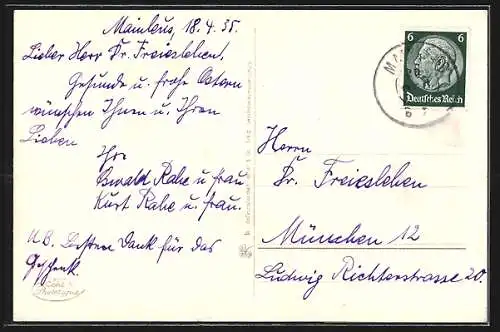 Mainleus, 18.4.35.
Lieber Herr Dr. Freiesleben!
Gesunde u. frohe Ostern
wünschen Ihnen u. Ihren
Lieben
Ihre
Oswald Rahe u. frau
Kurt Rahe u. frau.
N.B. Besten Dank für das
Geschenk.
6 6
Deutsches Reich
Herrn
Dr. Freiesleben
München 12
Ludwig Richterstrasse 20.